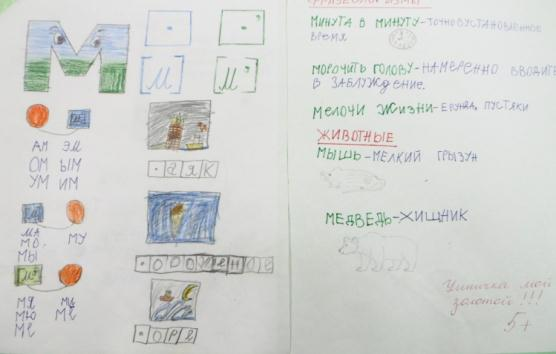 М
[М] М'
АМ ЭМ
ОМ ЫМ
УМ ИМ
МА
МО МУ
МЫ
МЯ МИ
МЮ МЁ
МЕ
•АЯК
•ОРОЖЕНОЕ
•ОРЯ
ФРАЗЕОЛОГИЗМЫ
МИНУТА В МИНУТУ-ТОЧНО УСТАНОВЛЕННОЕ
ВРЕМЯ
МОРОЧИТЬ ГОЛОВУ-НАМЕРЕННО ВВОДИТЬ
В ЗАБЛУЖДЕНИЕ.
МЕЛОЧИ ЖИЗНИ-ЕРУНДА, ПУСТЯКИ
ЖИВОТНЫЕ
МЫШЬ-МЕЛКИЙ ГРЫЗУН
МЕДВЕДЬ-ХИЩНИК
Умничка мой
золотой!!!
5+